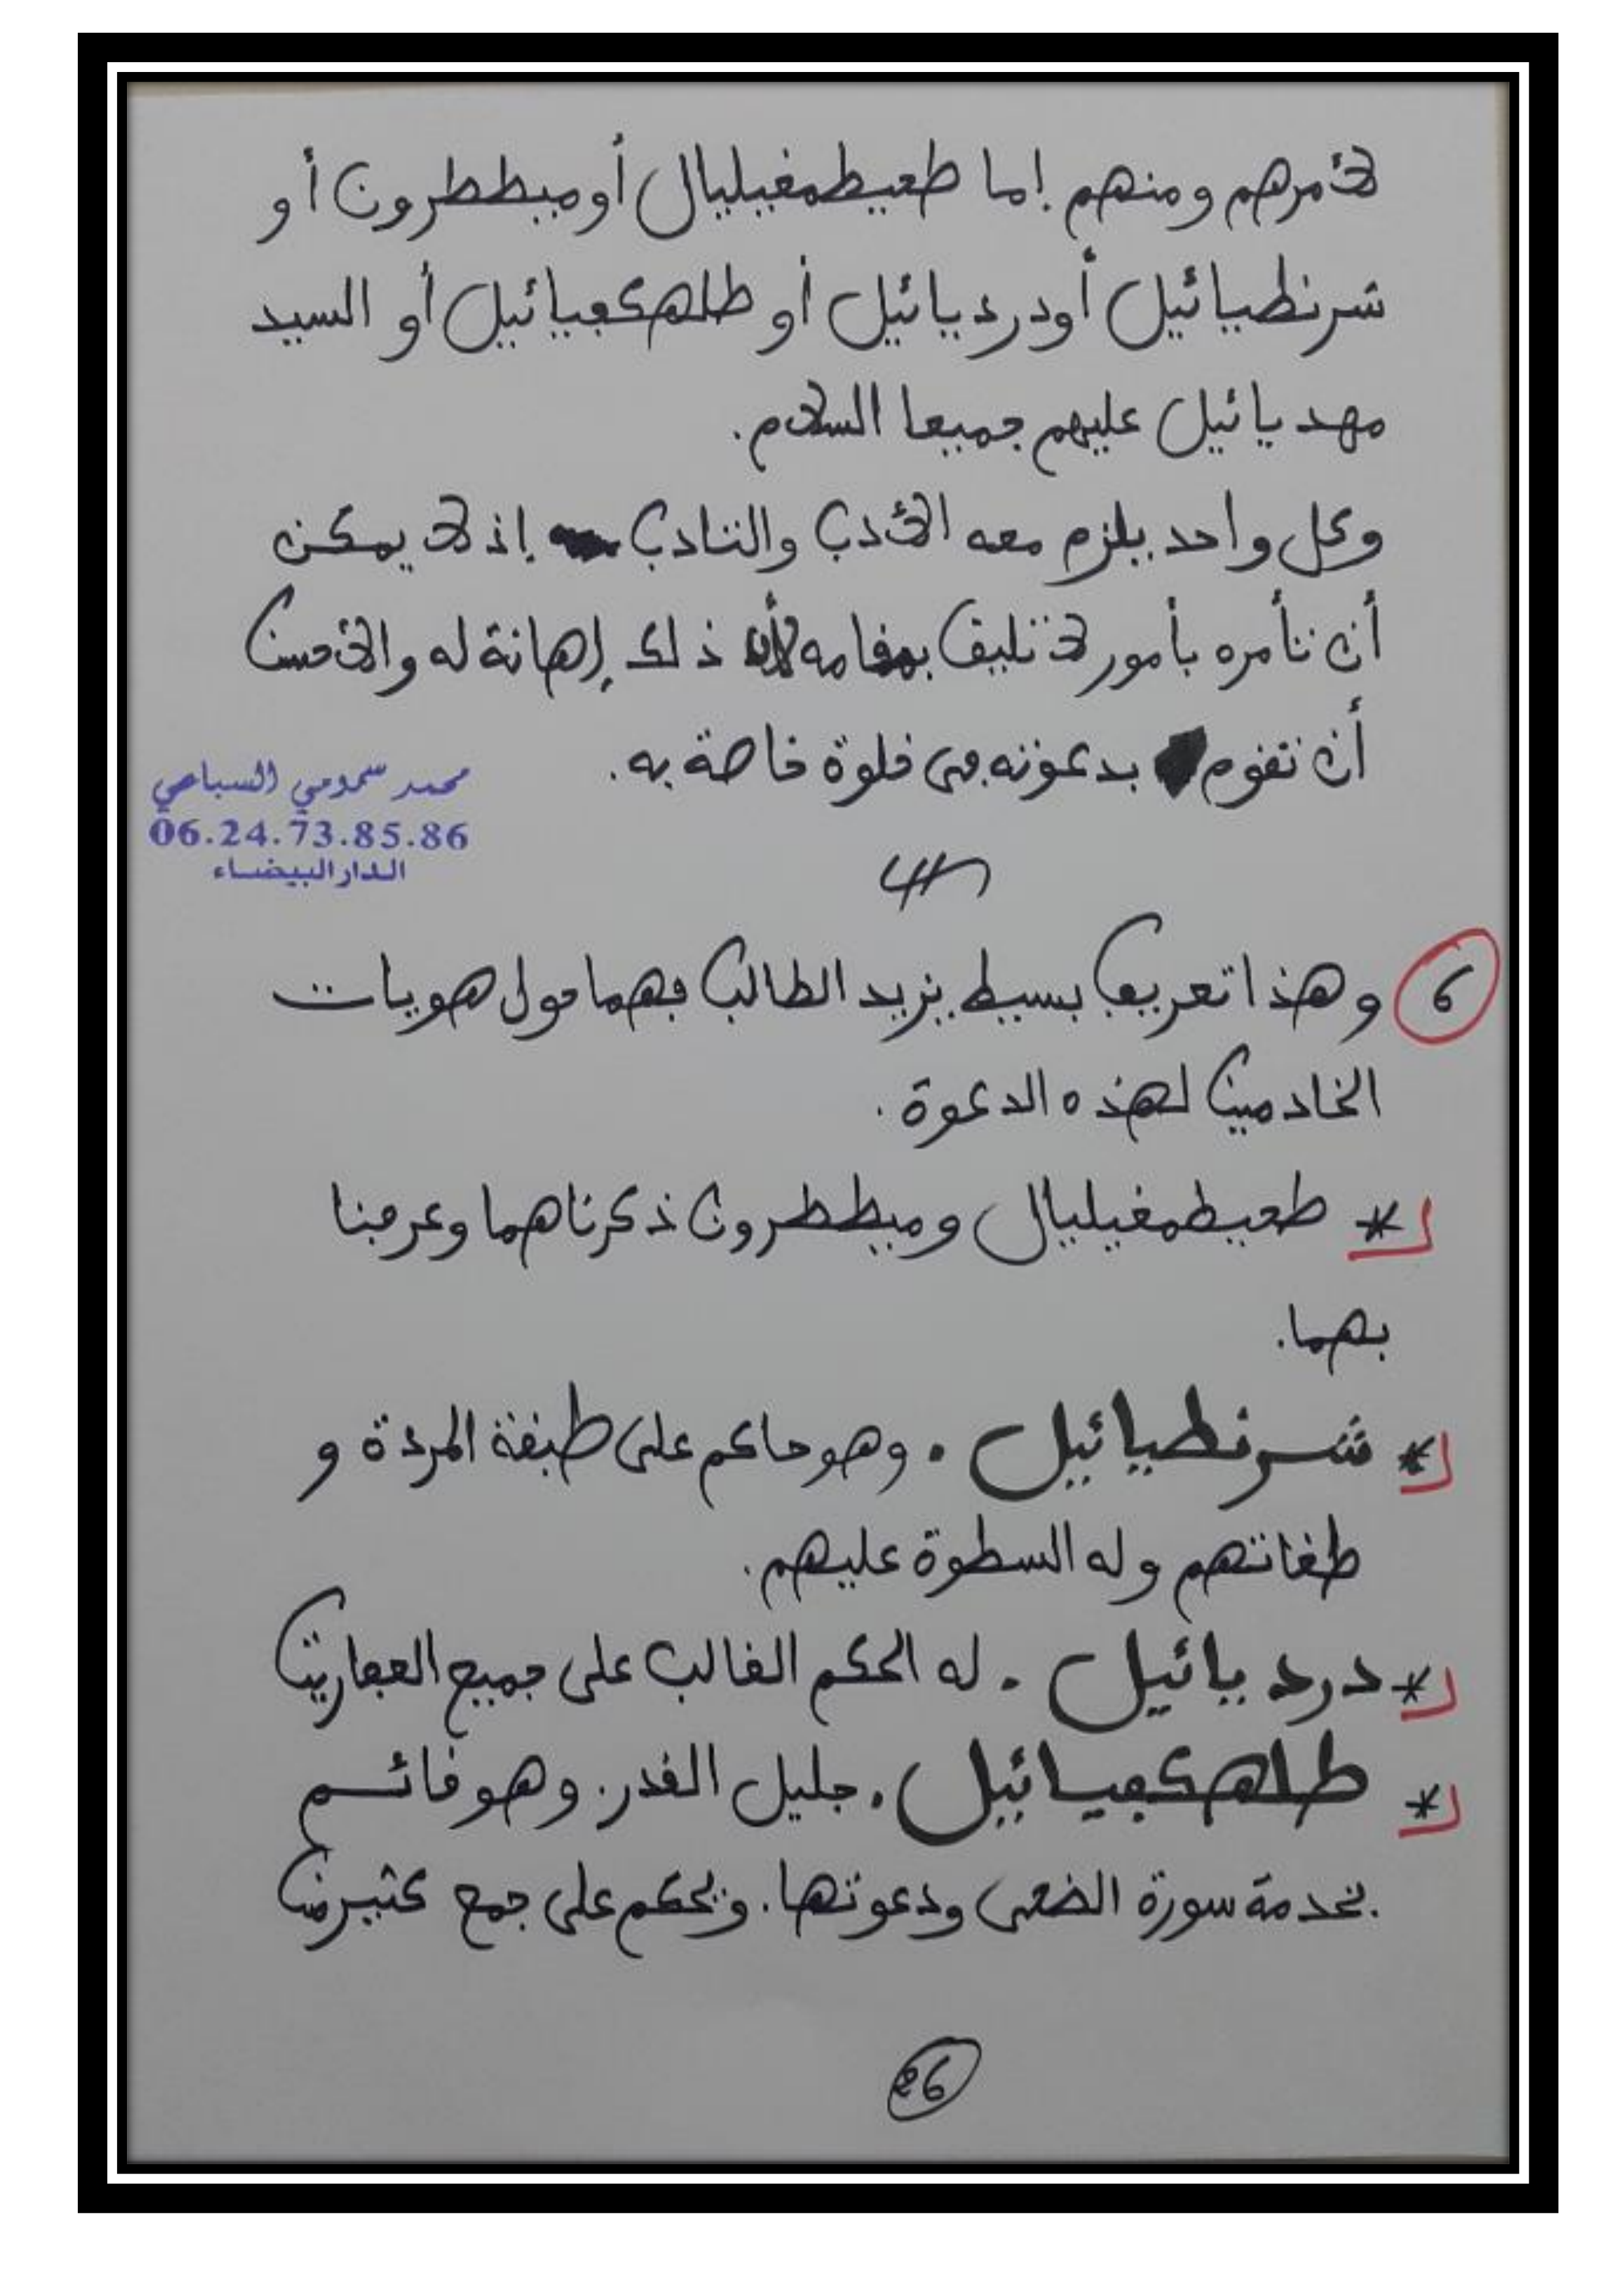 لأمرهم ومنهم إما طعيطمغيليال أو ميططرون أو
شرنطيائيل أو درديائيل أو طلهكفيائيل أو السيد
مهديائيل عليهم جميعا السلام.
وكل واحد يلزم معه الأدب والتأدب إذ لا يمكن
أن نأمره بأمور لا تليق بمقامه لأن ذلك إهانة له والأحسن
أن نقوم بدعوته في خلوة خاصة به.
محمد سمومي السباعي
06.24.73.85.86
الدار البيضاء
6 وهذا تعريف بسيط يزيد الطالب فهما حول هويات
الخادمين لهذه الدعوة.
* طعيطمغيليال وميططرون ذكرناهما وعرفنا
بهما.
* شرنطيائيل. وهو حاكم على طبقة المردة و
طغاتهم وله السطوة عليهم.
* درديائيل. له الحكم الغالب على جميع العفاريت
* طلهكفيائيل. جليل القدر. وهو قائم
بخدمة سورة الضحى ودعوتها. ويحكم على جمع كثير من
26